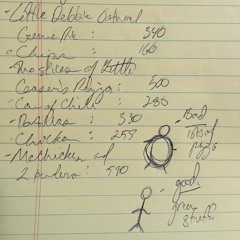 -Little Debbie Oatmeal
Creme Pie : 340
-Chips : 160
-Two slices of Little
Ceaser's Pizza: 500
-Can of Chili: 280
: 330
Chicken : 255
-McChicken and
2 : 590
Bad
lots of
pizza
good:
green
stuff